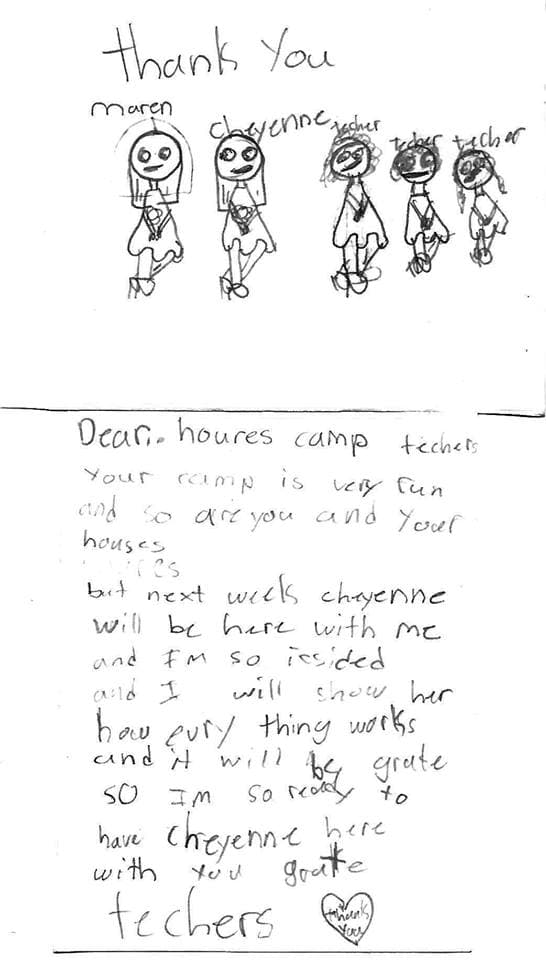 Thank You
maren
cheyenne
techer
techer
techer
Dear. houres camp techers
Your camp is very fun
and so are you and Your
houses
but next week cheyenne
will be here with me
and I'm so icsided
and I will show her
how evry thing works
and it will be grate
so I'm so ready to
have cheyenne here
with you grate
techers
thank
you